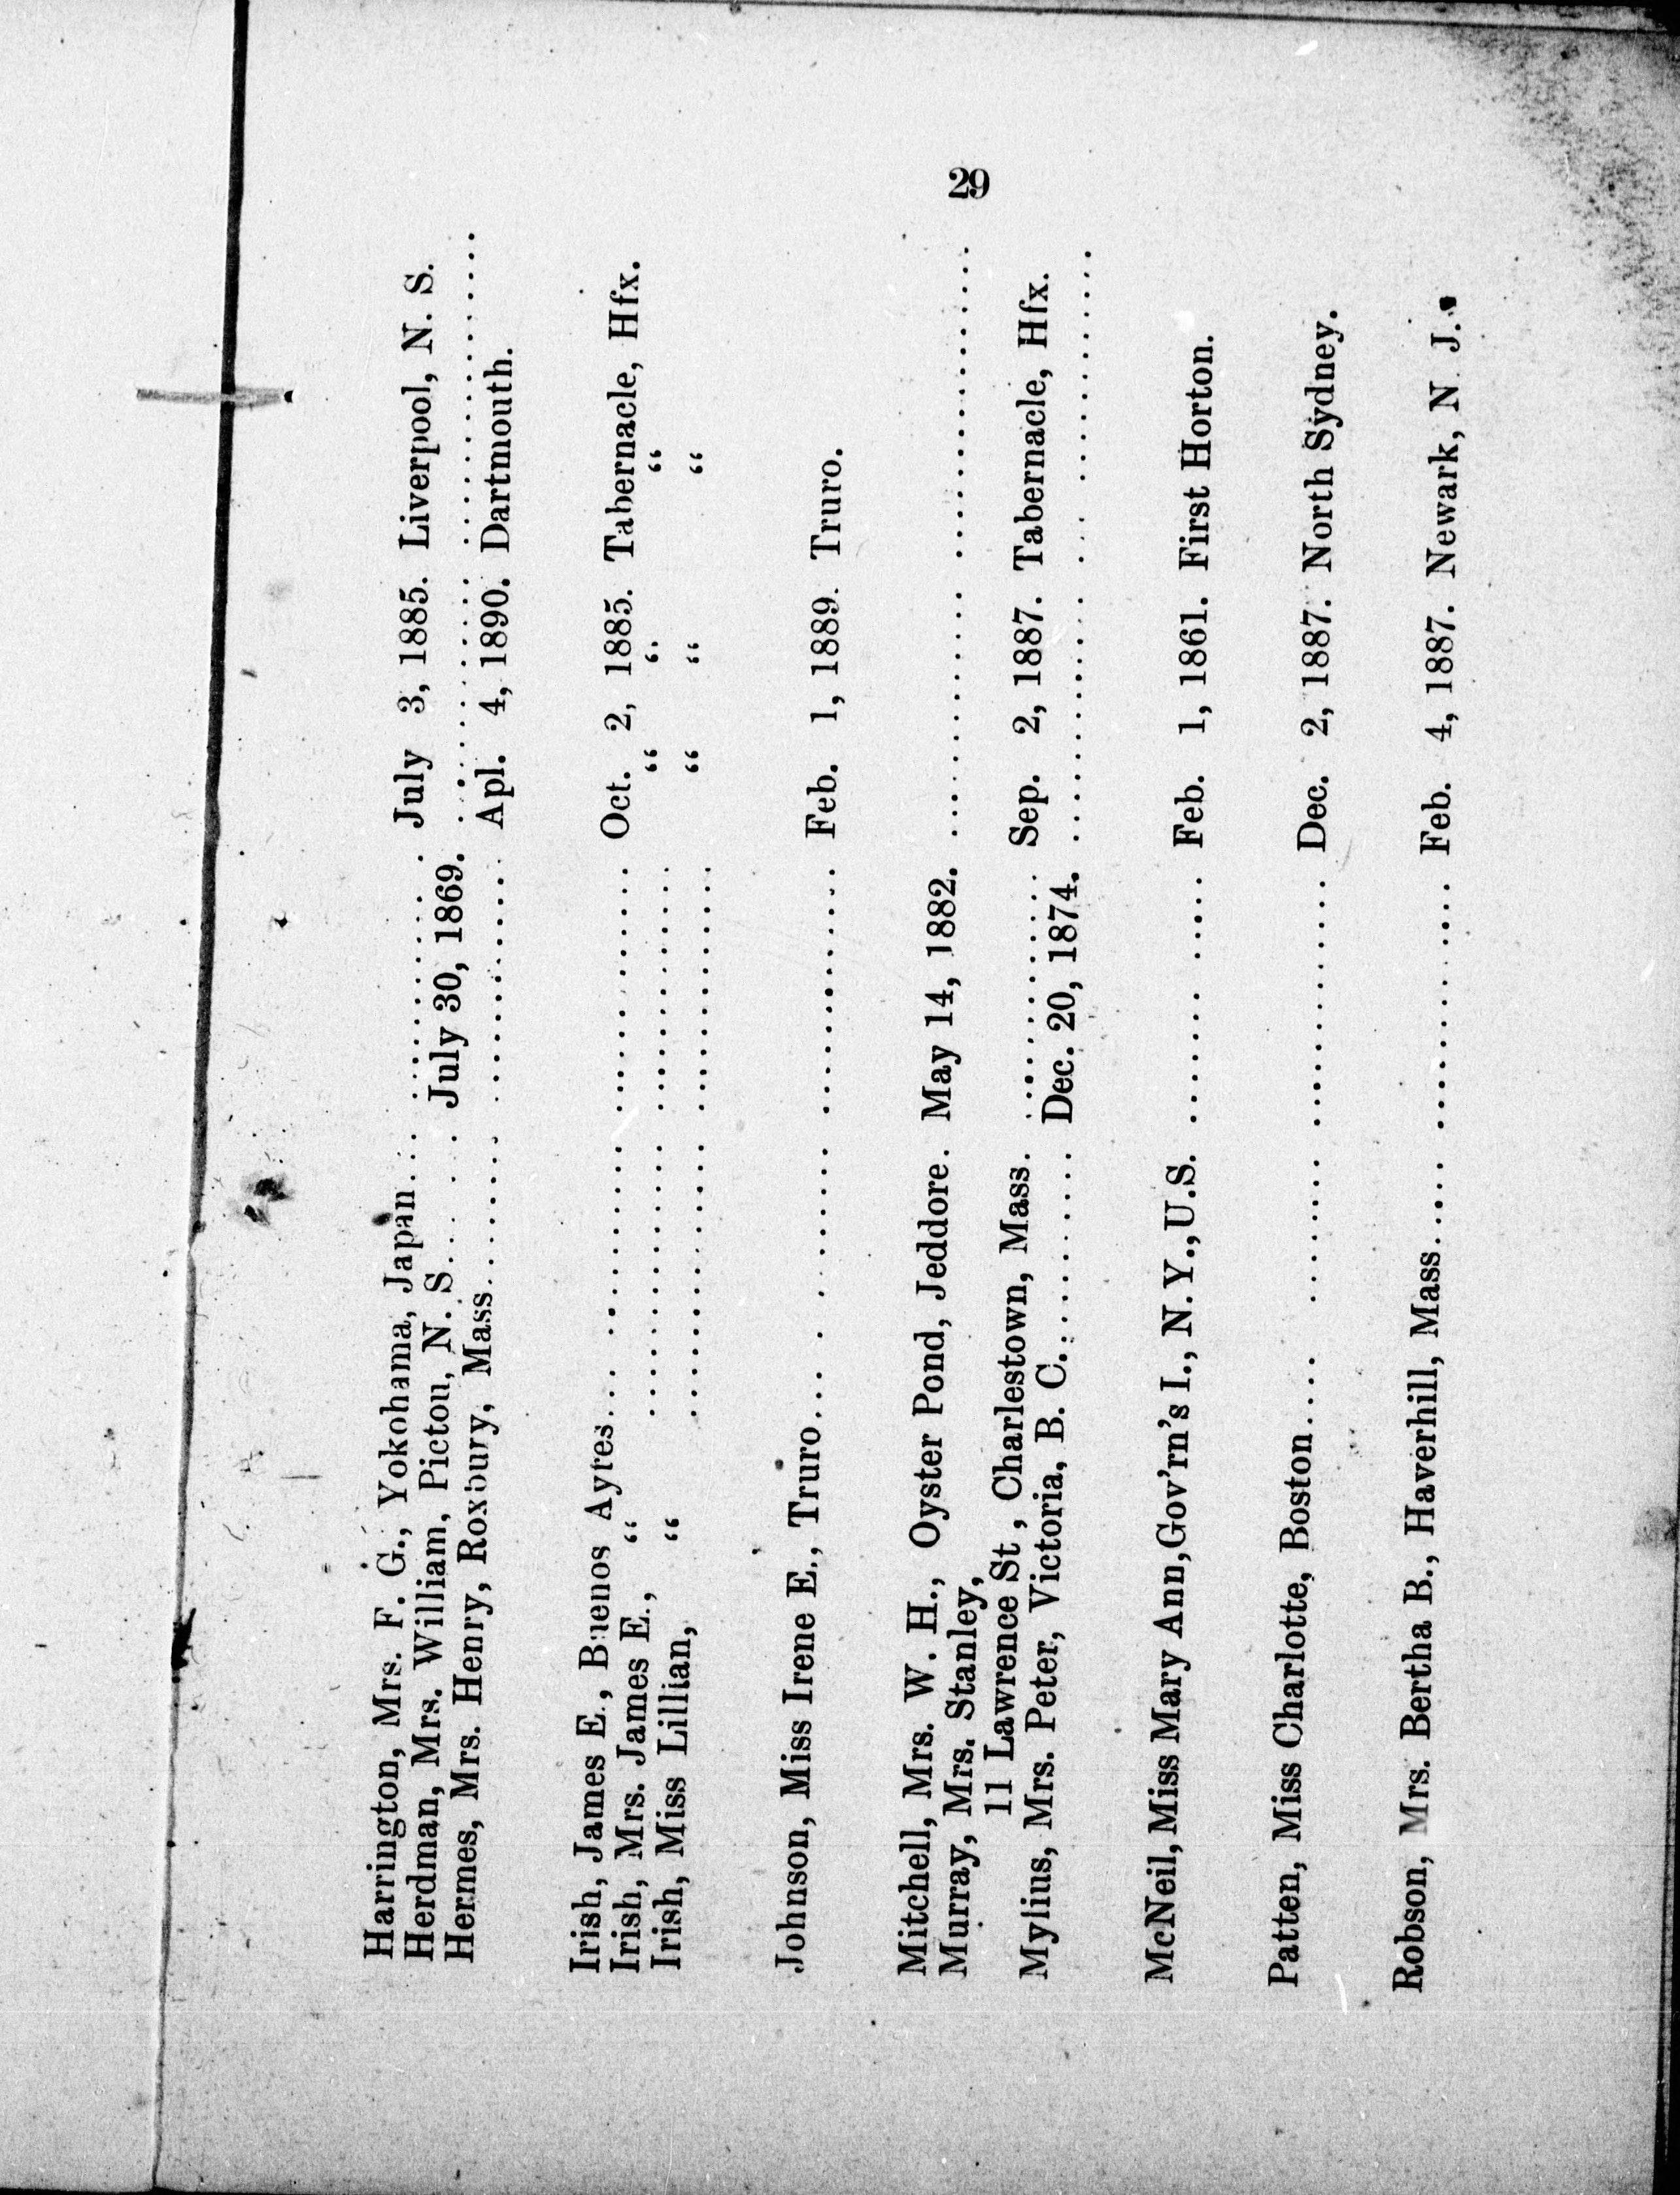 29
Harrington, Mrs. F. G., Yokohama, Japan... .......... July 3, 1885. Liverpool, N. S.
Herdman, Mrs. William, Pictou, N. S.... July 30, 1869. ....................
Hermes, Mrs. Henry, Roxbury, Mass....... .......... Apl. 4, 1890. Dartmouth.
Irish, James E., Buenos Ayres... .......... .......... Oct. 2, 1885. Tabernacle, Hfx.
Irish, Mrs. James E., “ .......... .......... “ “ “
Irish, Miss Lillian, “ .......... .......... “ “ “
Johnson, Miss Irene E., Truro... . ....... .......... Feb. 1, 1889. Truro.
Mitchell, Mrs. W. H., Oyster Pond, Jeddore. May 14, 1882. .......... ..........
Murray, Mrs. Stanley,
11 Lawrence St, Charlestown, Mass. .......... Sep. 2, 1887. Tabernacle, Hfx.
Mylius, Mrs. Peter, Victoria, B. C......... Dec. 20, 1874. .......... ..........
McNeil, Miss Mary Ann, Gov'rn's I., N. Y., U.S. ...... .... Feb. 1, 1861. First Horton.
Patten, Miss Charlotte, Boston.... ....... .......... Dec. 2, 1887. North Sydney.
Robson, Mrs. Bertha B., Haverhill, Mass..... .......... Feb. 4, 1887. Newark, N. J.